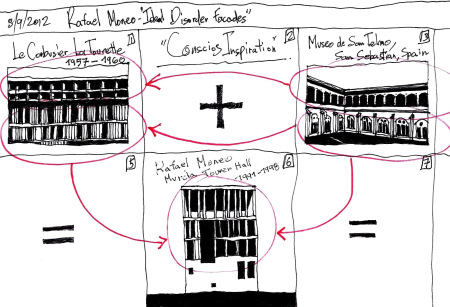 8/9/2012 Rafael Moneo-"Ideal Disorder Facades"
1
Le Corbusier La Tourette
1957-1960
2
"Conscios Inspiration"
3
Museo de San Telmo
San Sebastian, Spain
+
5
=
6
Rafael Moneo
Murcia Towner Hall
1991-1998
7
=